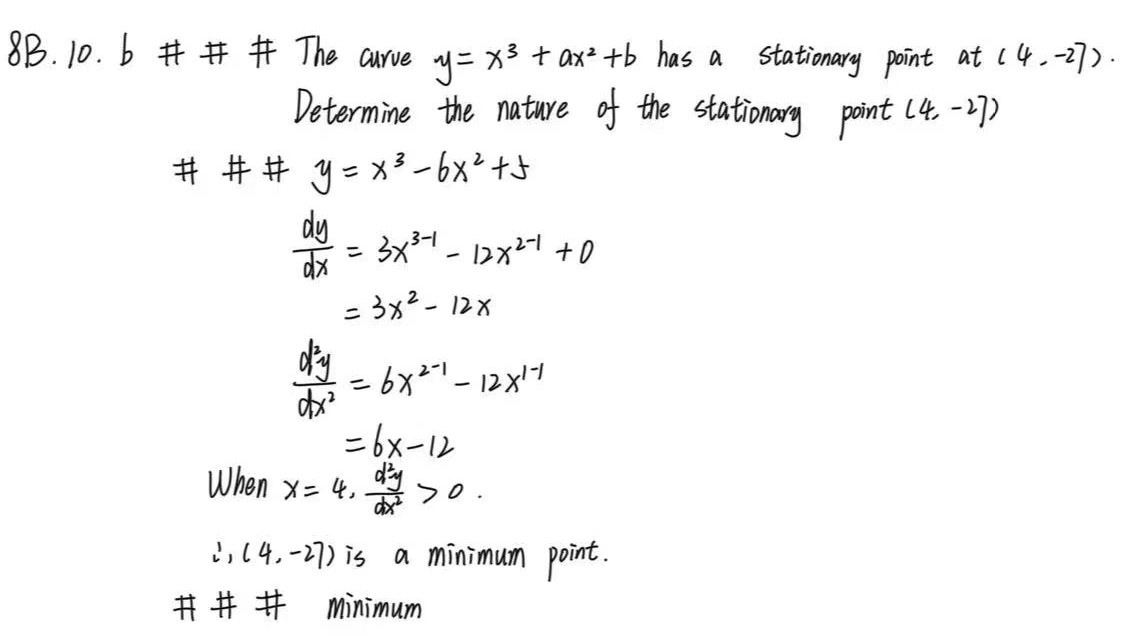 8B. 10. b # # # The curve y = x³ + ax² + b has a stationary point at (4, -27).
Determine the nature of the stationary point (4, -27)
# # # y = x³ - 6x² + 5
dy/dx = 3x³⁻¹ - 12x²⁻¹ + 0
= 3x² - 12x
d²y/dx² = 6x²⁻¹ - 12x¹⁻¹
= 6x - 12
When x = 4, d²y/dx² > 0.
∴, (4, -27) is a minimum point.
# # # minimum